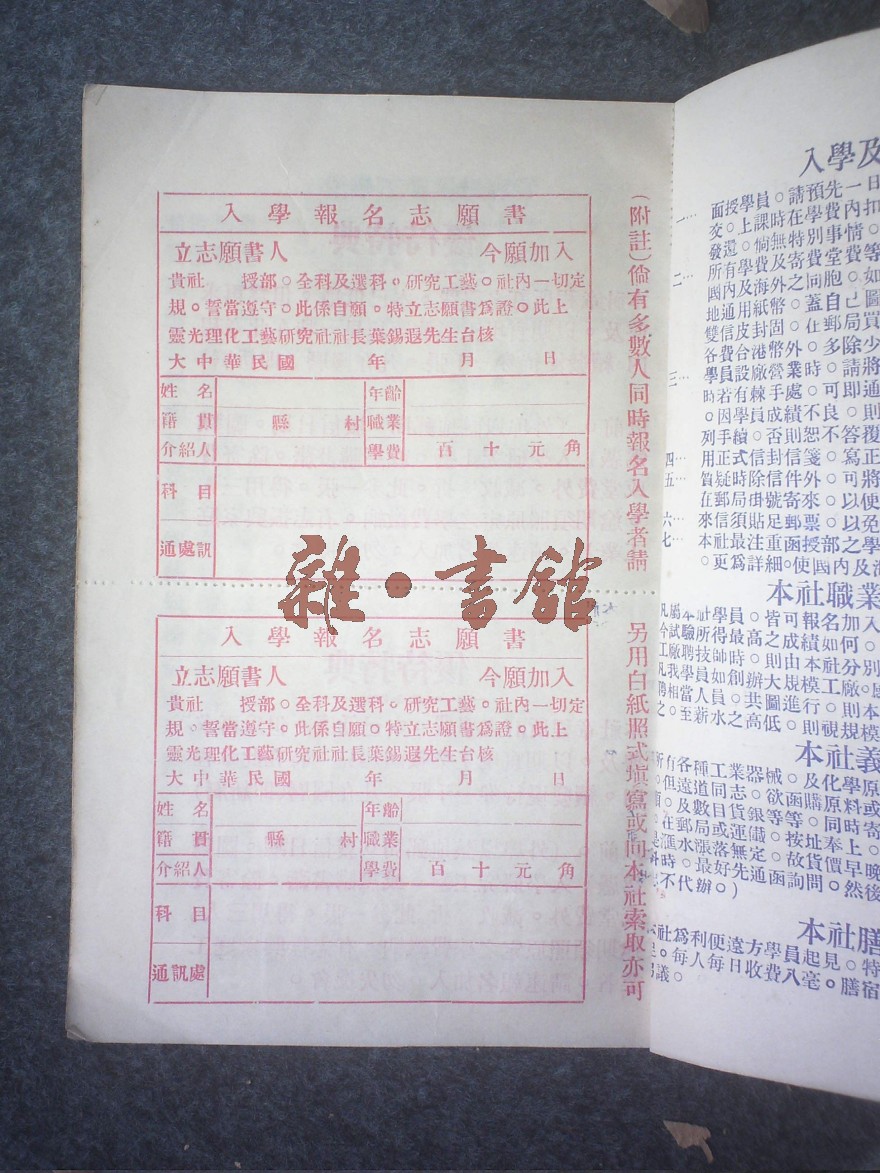 入學報名志願書
立志願書人 今願加入
貴社 授部。全科及選科。研究工藝。社內一切定
規。誓當遵守。此係自願。特立志願書爲證。此上
靈光理化工藝研究社社長葉錫遐先生台核
大中華民國 年 月 日
姓名 年齡
籍貫 縣 村 職業
介紹人 學費 百十元角
科目
通處訊
雜·書館
入學報名志願書
立志願書人 今願加入
貴社 授部。全科及選科。研究工藝。社內一切定
規。誓當遵守。此係自願。特立志願書爲證。此上
靈光理化工藝研究社社長葉錫遐先生台核
大中華民國 年 月 日
姓名 年齡
籍貫 縣 村 職業
介紹人 學費 百十元角
科目
通訊處
(附註)倘有多數人同時報名入學者請另用白紙照式塡寫或向本社索取亦可
入學及
一… 面授學員。請預先一日
交。上課時在學費內扣
發還。倘無特別事情。
所有學費及寄費堂費等
二… 國內及海外之同胞。如
地通用紙幣。蓋自己圖
雙信皮封固。在郵局買
各費合港幣外。多除少
三… 學員設廠營業時。請將
時若有棘手處。可即通
。因學員成績不良。則
列手續。否則恕不答覆
四… 用正式信封信箋。寫正
五… 質疑時除信件外。可將
在郵局掛號寄來。以便
六… 來信須貼足郵票。以免
七… 本社最注重函授部之學
。更爲詳細。使國內及海
本社職業
凡屬本社學員。皆可報名加入
今試驗所得最高之成績如何。
工廠聘技師時。則由本社分別
凡我學員如創辦大規模工廠。
聘相當人員。共圖進行。則本
之。至新水之高低。則視規模
本社義
所有各種工業器械。及化學原
。但遠道同志。欲函購原料或
。及數目貨銀等等。同時寄
。在郵局或運儎。按址奉上。
是滙水漲落無定。故貨價早晚
時。最好先通函詢問。然後
不代辦。)
本社膳
本社爲利便遠方學員起見。特
。每人每日收費八毫。膳宿
議。